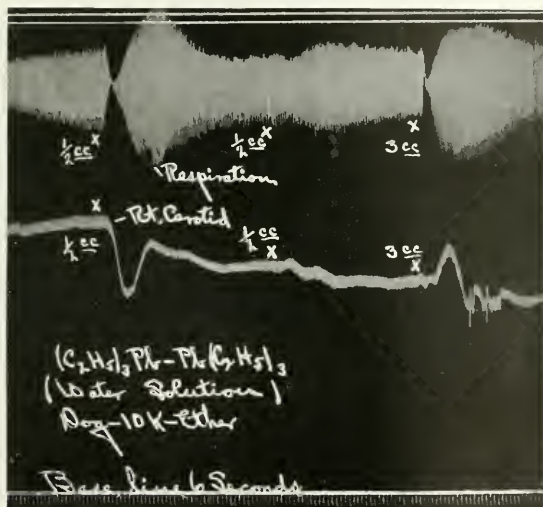 x x
½ cc ½ cc x 3 cc
Respiration
x - Rt. Carotid
½ cc ½ cc 3 cc
x x
(C₂H₅)₃Pb-Pb(C₂H₅)₃
(Water Solution)
Dog-10K-Ether
Base line 6 Seconds